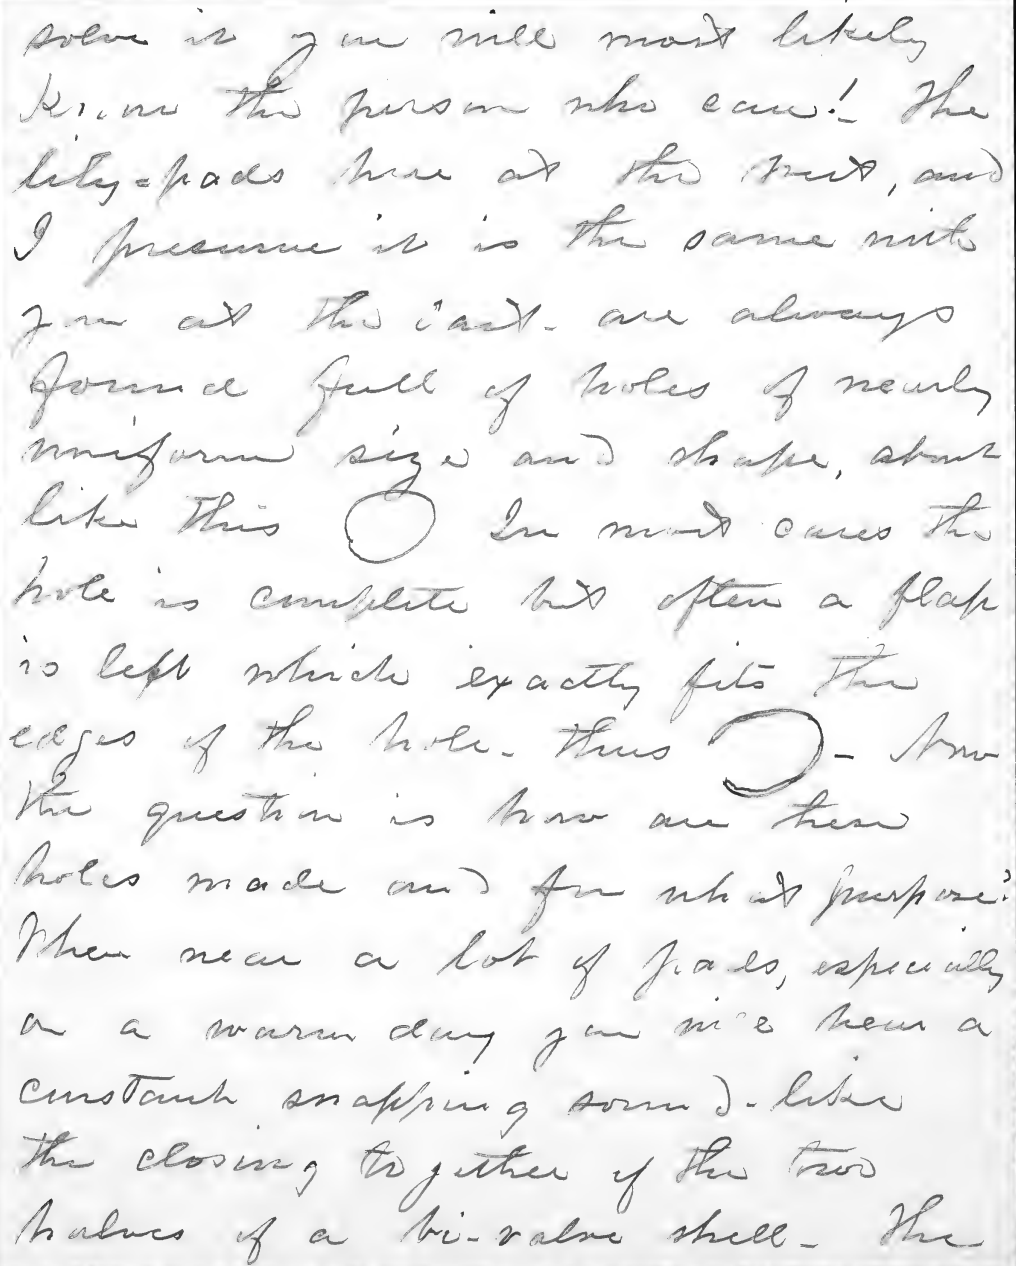 solve it you will most likely
Know the person who can! The
lily-pads here at the West, and
I presume it is the same with
you at the East - are always
found full of holes of nearly
uniform size and shape, about
like this In most cases the
hole is complete but often a flap
is left which exactly fits the
edges of the hole - thus - Now
the question is how are these
holes made and for what purpose?
When near a lot of pads, especially
on a warm day you will hear a
constant snapping sound - like
the closing together of the two
halves of a bi-valve shell - The